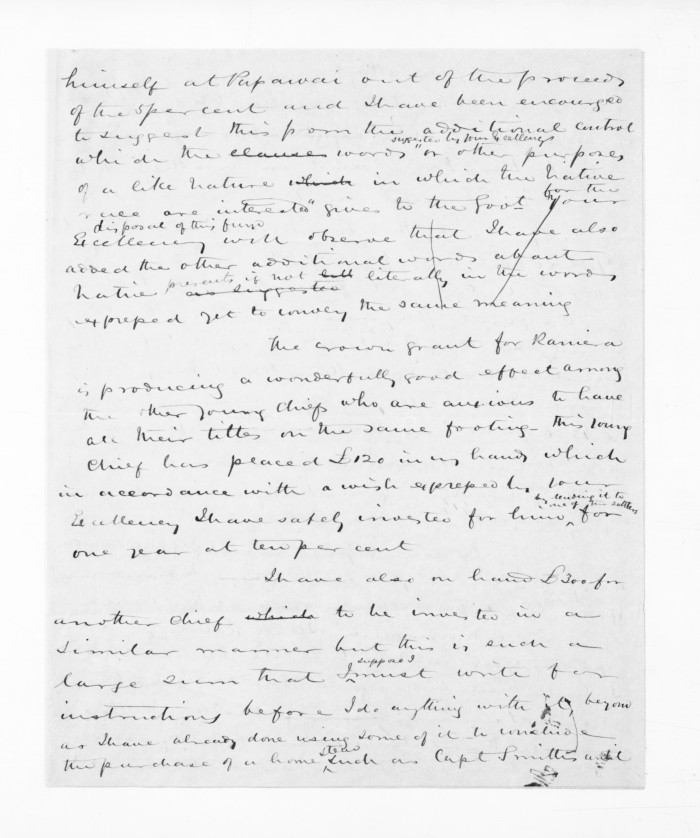 himself at Papawai out of the proceeds
of the 5 per cent and I have been encouraged
to suggest this from the additional control
suggested by your Excellency
which the clause words "or other purposes
of a like nature which in which the Native
for the
race are interested" gives to the Govt Your
disposal of this fund
Excellency will observe that I have also
added the other additional words about
Native presents if not literally in the words
as suggested
expressed yet to convey the same meaning
The crown grant for Raniera
is producing a wonderfully good effect among
the other young chiefs who are anxious to have
all their titles on the same footing - this young
chief has placed £120 in my hands which
in accordance with a wish expressed by your
by lending it to
one of our settlers
Excellency I have safely invested for him for
one year at ten per cent
I have also on hand £300 for
another chief which to be invested in a
similar manner but this is such a
suppose I
large sum that I must write for
instructions before I do anything with it, beyond
as I have already done using some of it to conclude
stead
the purchase of a home such as Capt Smith's